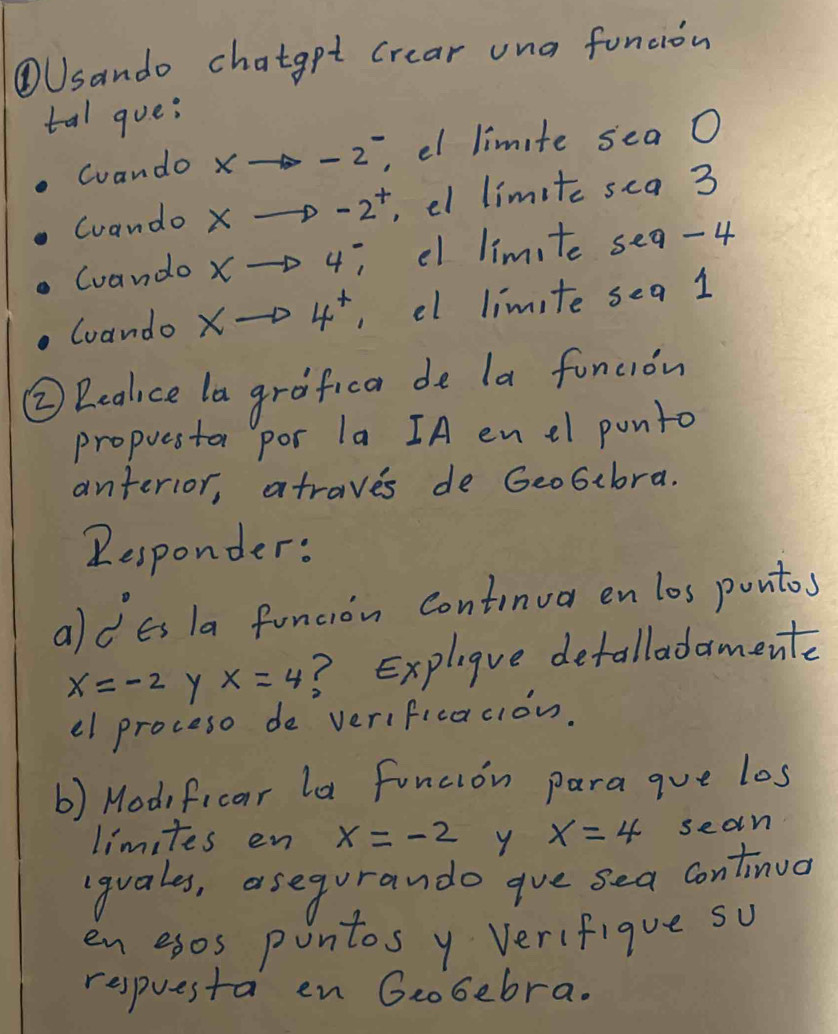 ①Usando chatgpt crear una función
tal que:
• Cuando x → -2⁻, el límite sea 0
• Cuando x → -2⁺, el límite sea 3
• Cuando x → 4⁻, el límite sea -4
• Cuando x → 4⁺, el límite sea 1
② Realice la gráfica de la función
propuesta por la IA en el punto
anterior, através de GeoGebra.
Responder:
a) ¿Es la función continua en los puntos
x = -2 y x = 4? Explique detalladamente
el proceso de verificación.
b) Modificar la función para que los
límites en x = -2 y x = 4 sean
iguales, asegurando que sea continua
en esos puntos y verifique su
respuesta en GeoGebra.